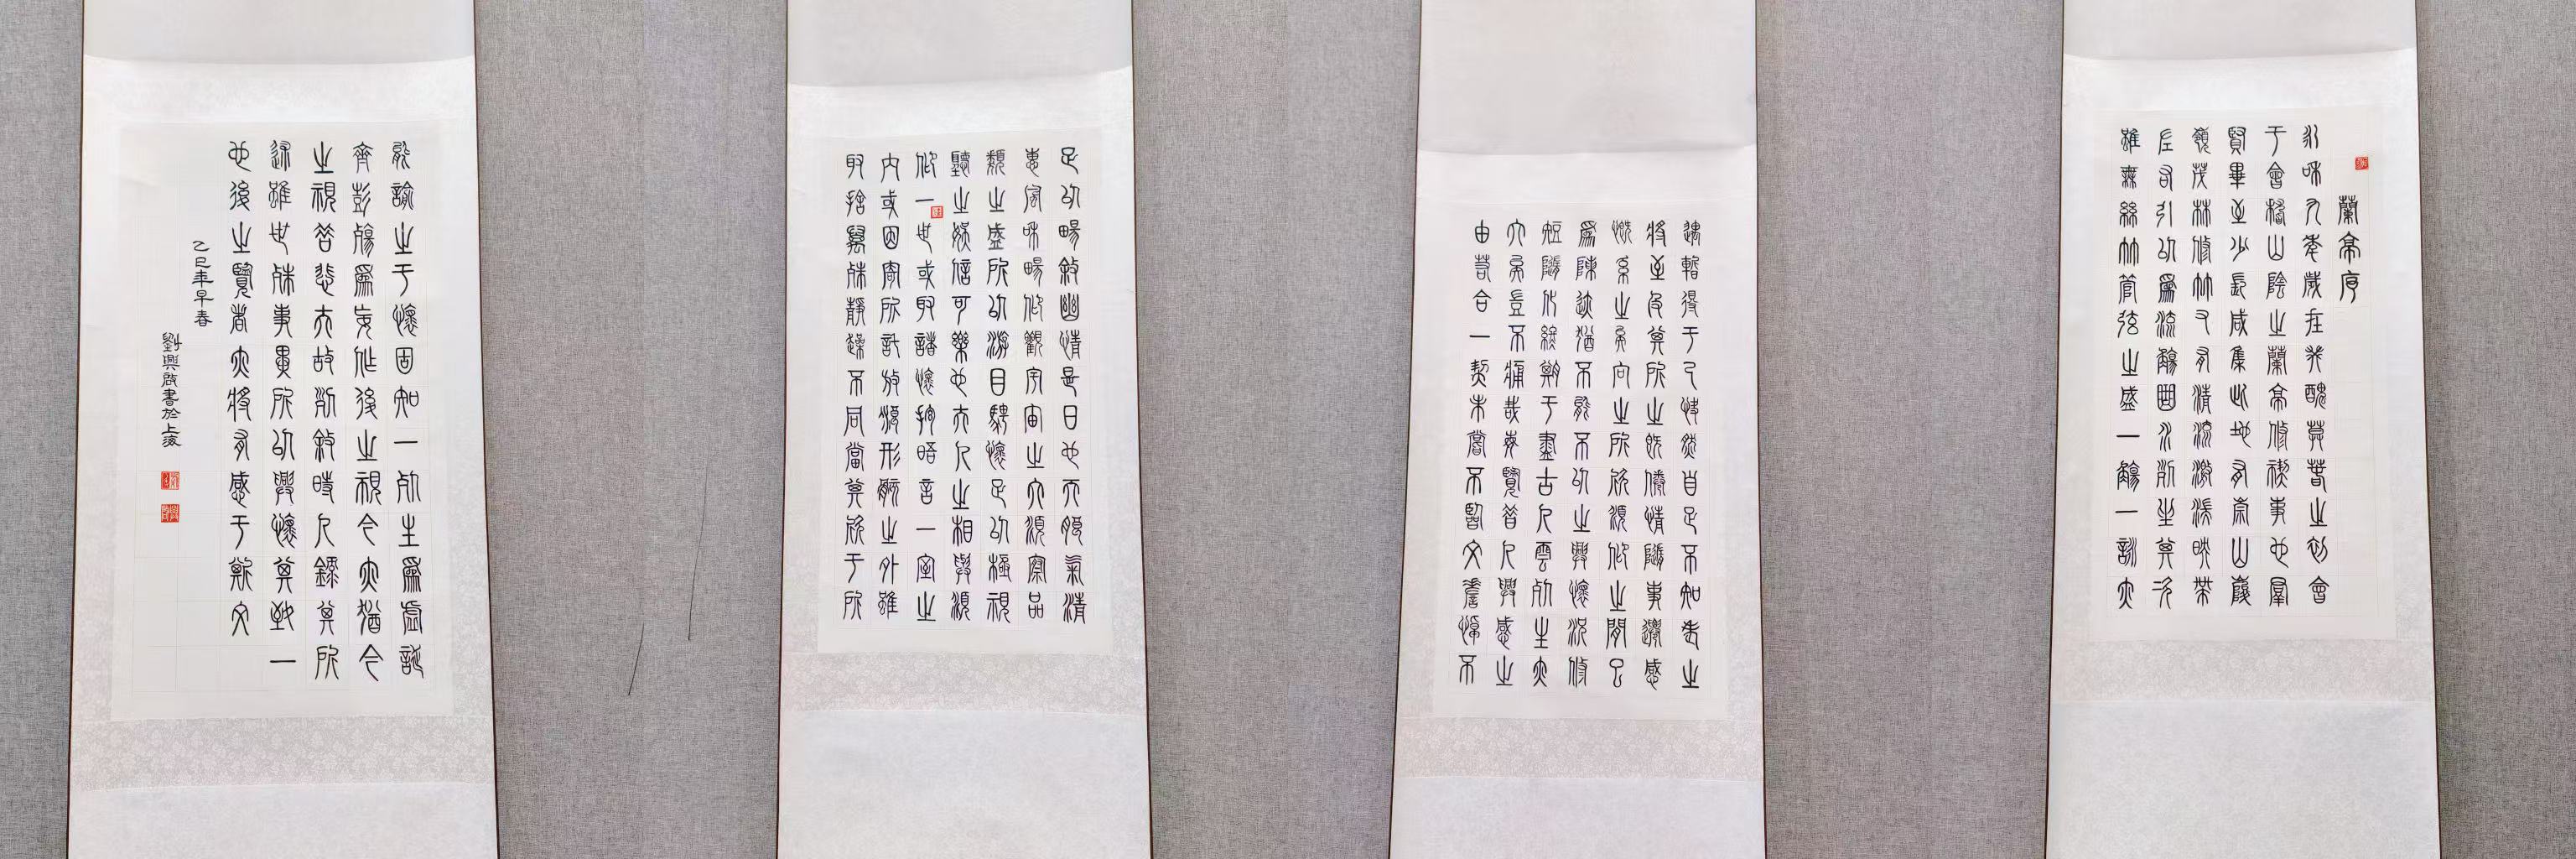 蘭亭序
永和九年歲在癸醜莫春之初會
于會稽山陰之蘭亭修禊事也羣
賢畢至少長咸集此地有崇山峻
嶺茂林修竹又有清流激湍映帶
左右引以爲流觴曲水列坐其次
雖無絲竹管弦之盛一觴一詠亦
足以暢敘幽情是日也天朗氣清
惠風和暢仰觀宇宙之大俯察品
類之盛所以游目騁懷足以極視
聽之娛信可樂也夫人之相與俯
仰一世或取諸懷抱晤言一室之
內或因寄所託放浪形骸之外雖
取捨萬殊靜躁不同當其欣于所
遇暫得于己快然自足不知老之
將至及其所之既倦情隨事遷感
慨系之矣向之所欣俯仰之間已
爲陳迹猶不能不以之興懷況修
短隨化終期于盡古人雲死生亦
大矣豈不痛哉每覽昔人興感之
由若合一契未嘗不臨文嗟悼不
能諭之于懷固知一死生爲虛誕
齊彭殤爲妄作後之視今亦猶今
之視昔悲夫故列敘時人錄其所
述雖世殊事異所以興懷其致一
也後之覽者亦將有感于斯文
乙巳年早春
劉興啟書於上海